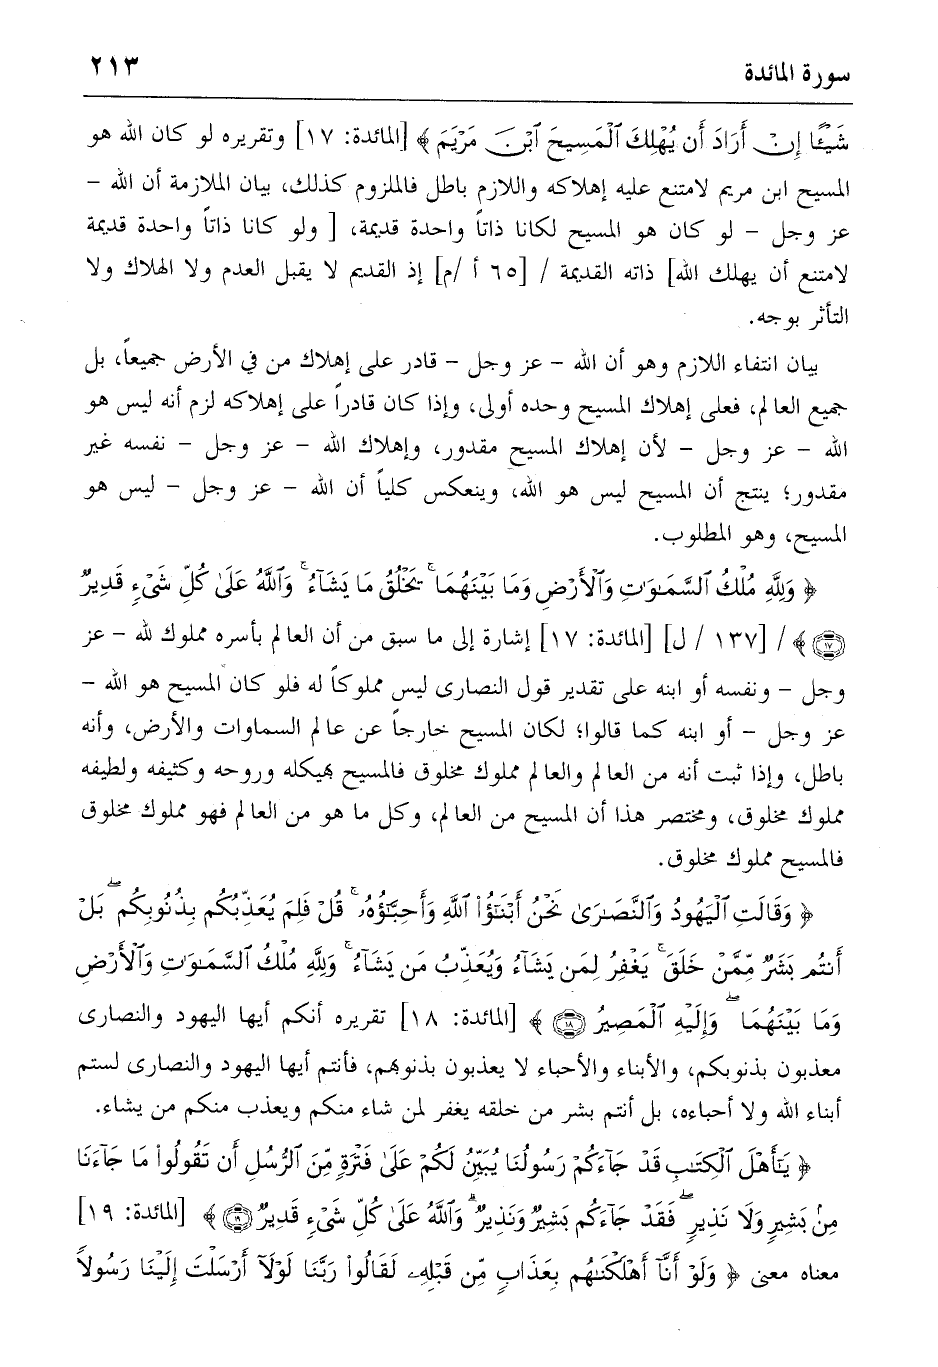 سورة المائدة ٢١٣
شَيْـًٔا إِنْ أَرَادَ أَن يُهْلِكَ ٱلْمَسِيحَ ٱبْنَ مَرْيَمَ ﴾ [المائدة: ١٧] وتقريره لو كان الله هو
المسيح ابن مريم لامتنع عليه إهلاكه واللازم باطل فالملزوم كذلك، بيان الملازمة أن الله –
عز وجل – لو كان هو المسيح لكانا ذاتاً واحدة قديمة، [ ولو كانا ذاتاً واحدة قديمة
لامتنع أن يهلك الله] ذاته القديمة / [٦٥ أ /م] إذ القديم لا يقبل العدم ولا الهلاك ولا
التأثر بوجه.
بيان انتفاء اللازم وهو أن الله – عز وجل – قادر على إهلاك من في الأرض جميعاً، بل
جميع العالم، فعلى إهلاك المسيح وحده أولى، وإذا كان قادراً على إهلاكه لزم أنه ليس هو
الله – عز وجل – لأن إهلاك المسيح مقدور، وإهلاك الله – عز وجل – نفسه غير
مقدور؛ ينتج أن المسيح ليس هو الله، وينعكس كلياً أن الله – عز وجل – ليس هو
المسيح، وهو المطلوب.
﴿ وَلِلَّهِ مُلْكُ ٱلسَّمَـٰوَٰتِ وَٱلْأَرْضِ وَمَا بَيْنَهُمَا ۚ يَخْلُقُ مَا يَشَآءُ ۚ وَٱللَّهُ عَلَىٰ كُلِّ شَىْءٍ قَدِيرٌ
۝١٧ ﴾ / [١٣٧ / ل] [المائدة: ١٧] إشارة إلى ما سبق من أن العالم بأسره مملوك لله – عز
وجل – ونفسه أو ابنه على تقدير قول النصارى ليس مملوكاً له فلو كان المسيح هو الله –
عز وجل – أو ابنه كما قالوا؛ لكان المسيح خارجاً عن عالم السماوات والأرض، وأنه
باطل، وإذا ثبت أنه من العالم والعالم مملوك مخلوق فالمسيح بهيكله وروحه وكثيفه ولطيفه
مملوك مخلوق، ومختصر هذا أن المسيح من العالم، وكل ما هو من العالم فهو مملوك مخلوق
فالمسيح مملوك مخلوق.
﴿ وَقَالَتِ ٱلْيَهُودُ وَٱلنَّصَـٰرَىٰ نَحْنُ أَبْنَـٰٓؤُا۟ ٱللَّهِ وَأَحِبَّـٰٓؤُهُۥ ۚ قُلْ فَلِمَ يُعَذِّبُكُم بِذُنُوبِكُم ۖ بَلْ
أَنتُم بَشَرٌ مِّمَّنْ خَلَقَ ۚ يَغْفِرُ لِمَن يَشَآءُ وَيُعَذِّبُ مَن يَشَآءُ ۚ وَلِلَّهِ مُلْكُ ٱلسَّمَـٰوَٰتِ وَٱلْأَرْضِ
وَمَا بَيْنَهُمَا ۖ وَإِلَيْهِ ٱلْمَصِيرُ ۝١٨ ﴾ [المائدة: ١٨] تقريره أنكم أيها اليهود والنصارى
معذبون بذنوبكم، والأبناء والأحباء لا يعذبون بذنوبهم، فأنتم أيها اليهود والنصارى لستم
أبناء الله ولا أحباءه، بل أنتم بشر من خلقه يغفر لمن شاء منكم ويعذب منكم من يشاء.
﴿ يَـٰٓأَهْلَ ٱلْكِتَـٰبِ قَدْ جَآءَكُمْ رَسُولُنَا يُبَيِّنُ لَكُمْ عَلَىٰ فَتْرَةٍ مِّنَ ٱلرُّسُلِ أَن تَقُولُوا۟ مَا جَآءَنَا
مِنۢ بَشِيرٍ وَلَا نَذِيرٍ ۖ فَقَدْ جَآءَكُم بَشِيرٌ وَنَذِيرٌ ۗ وَٱللَّهُ عَلَىٰ كُلِّ شَىْءٍ قَدِيرٌ ۝١٩ ﴾ [المائدة: ١٩]
معناه معنى ﴿ وَلَوْ أَنَّآ أَهْلَكْنَـٰهُم بِعَذَابٍ مِّن قَبْلِهِۦ لَقَالُوا۟ رَبَّنَا لَوْلَآ أَرْسَلْتَ إِلَيْنَا رَسُولًا